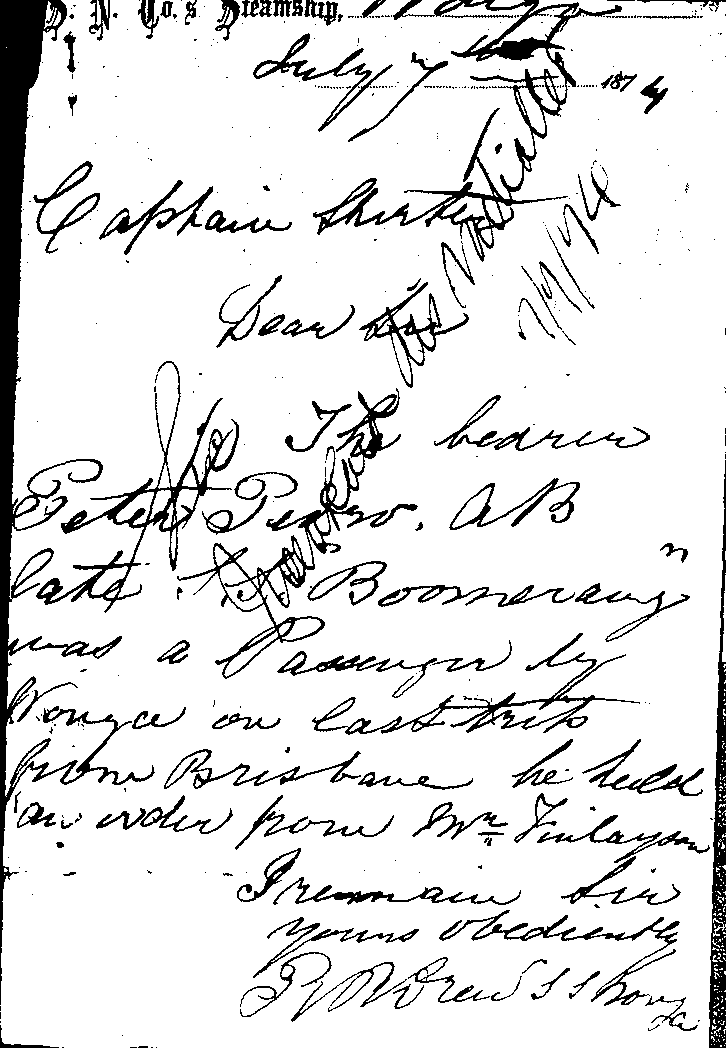 D. N. Co.'s Steamship,
July 7 1874
Captain
Dear Sir
The bearer
Peter AB
late "Boomerang"
was a Passenger by
on last trip
from Brisbane he held
an order from Mr Finlayson
I remain Sir
yours obediently
7/7/74